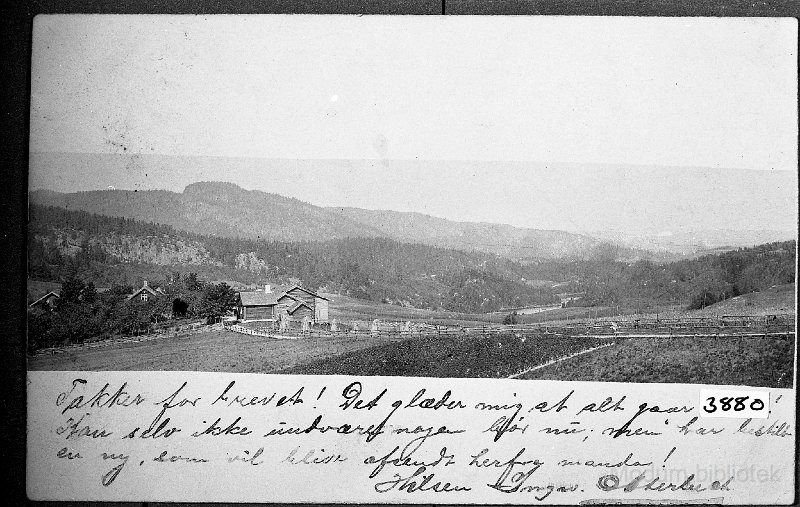 Takker for brevet! Det glæder mig, at alt gaar 3880 !
Kan selv ikke undvære nogen her nu; men har bestilt
en ny, som vil blive afsendt herfra mandag!
Hilsen Ingav. Otterbech
Modum bibliotek